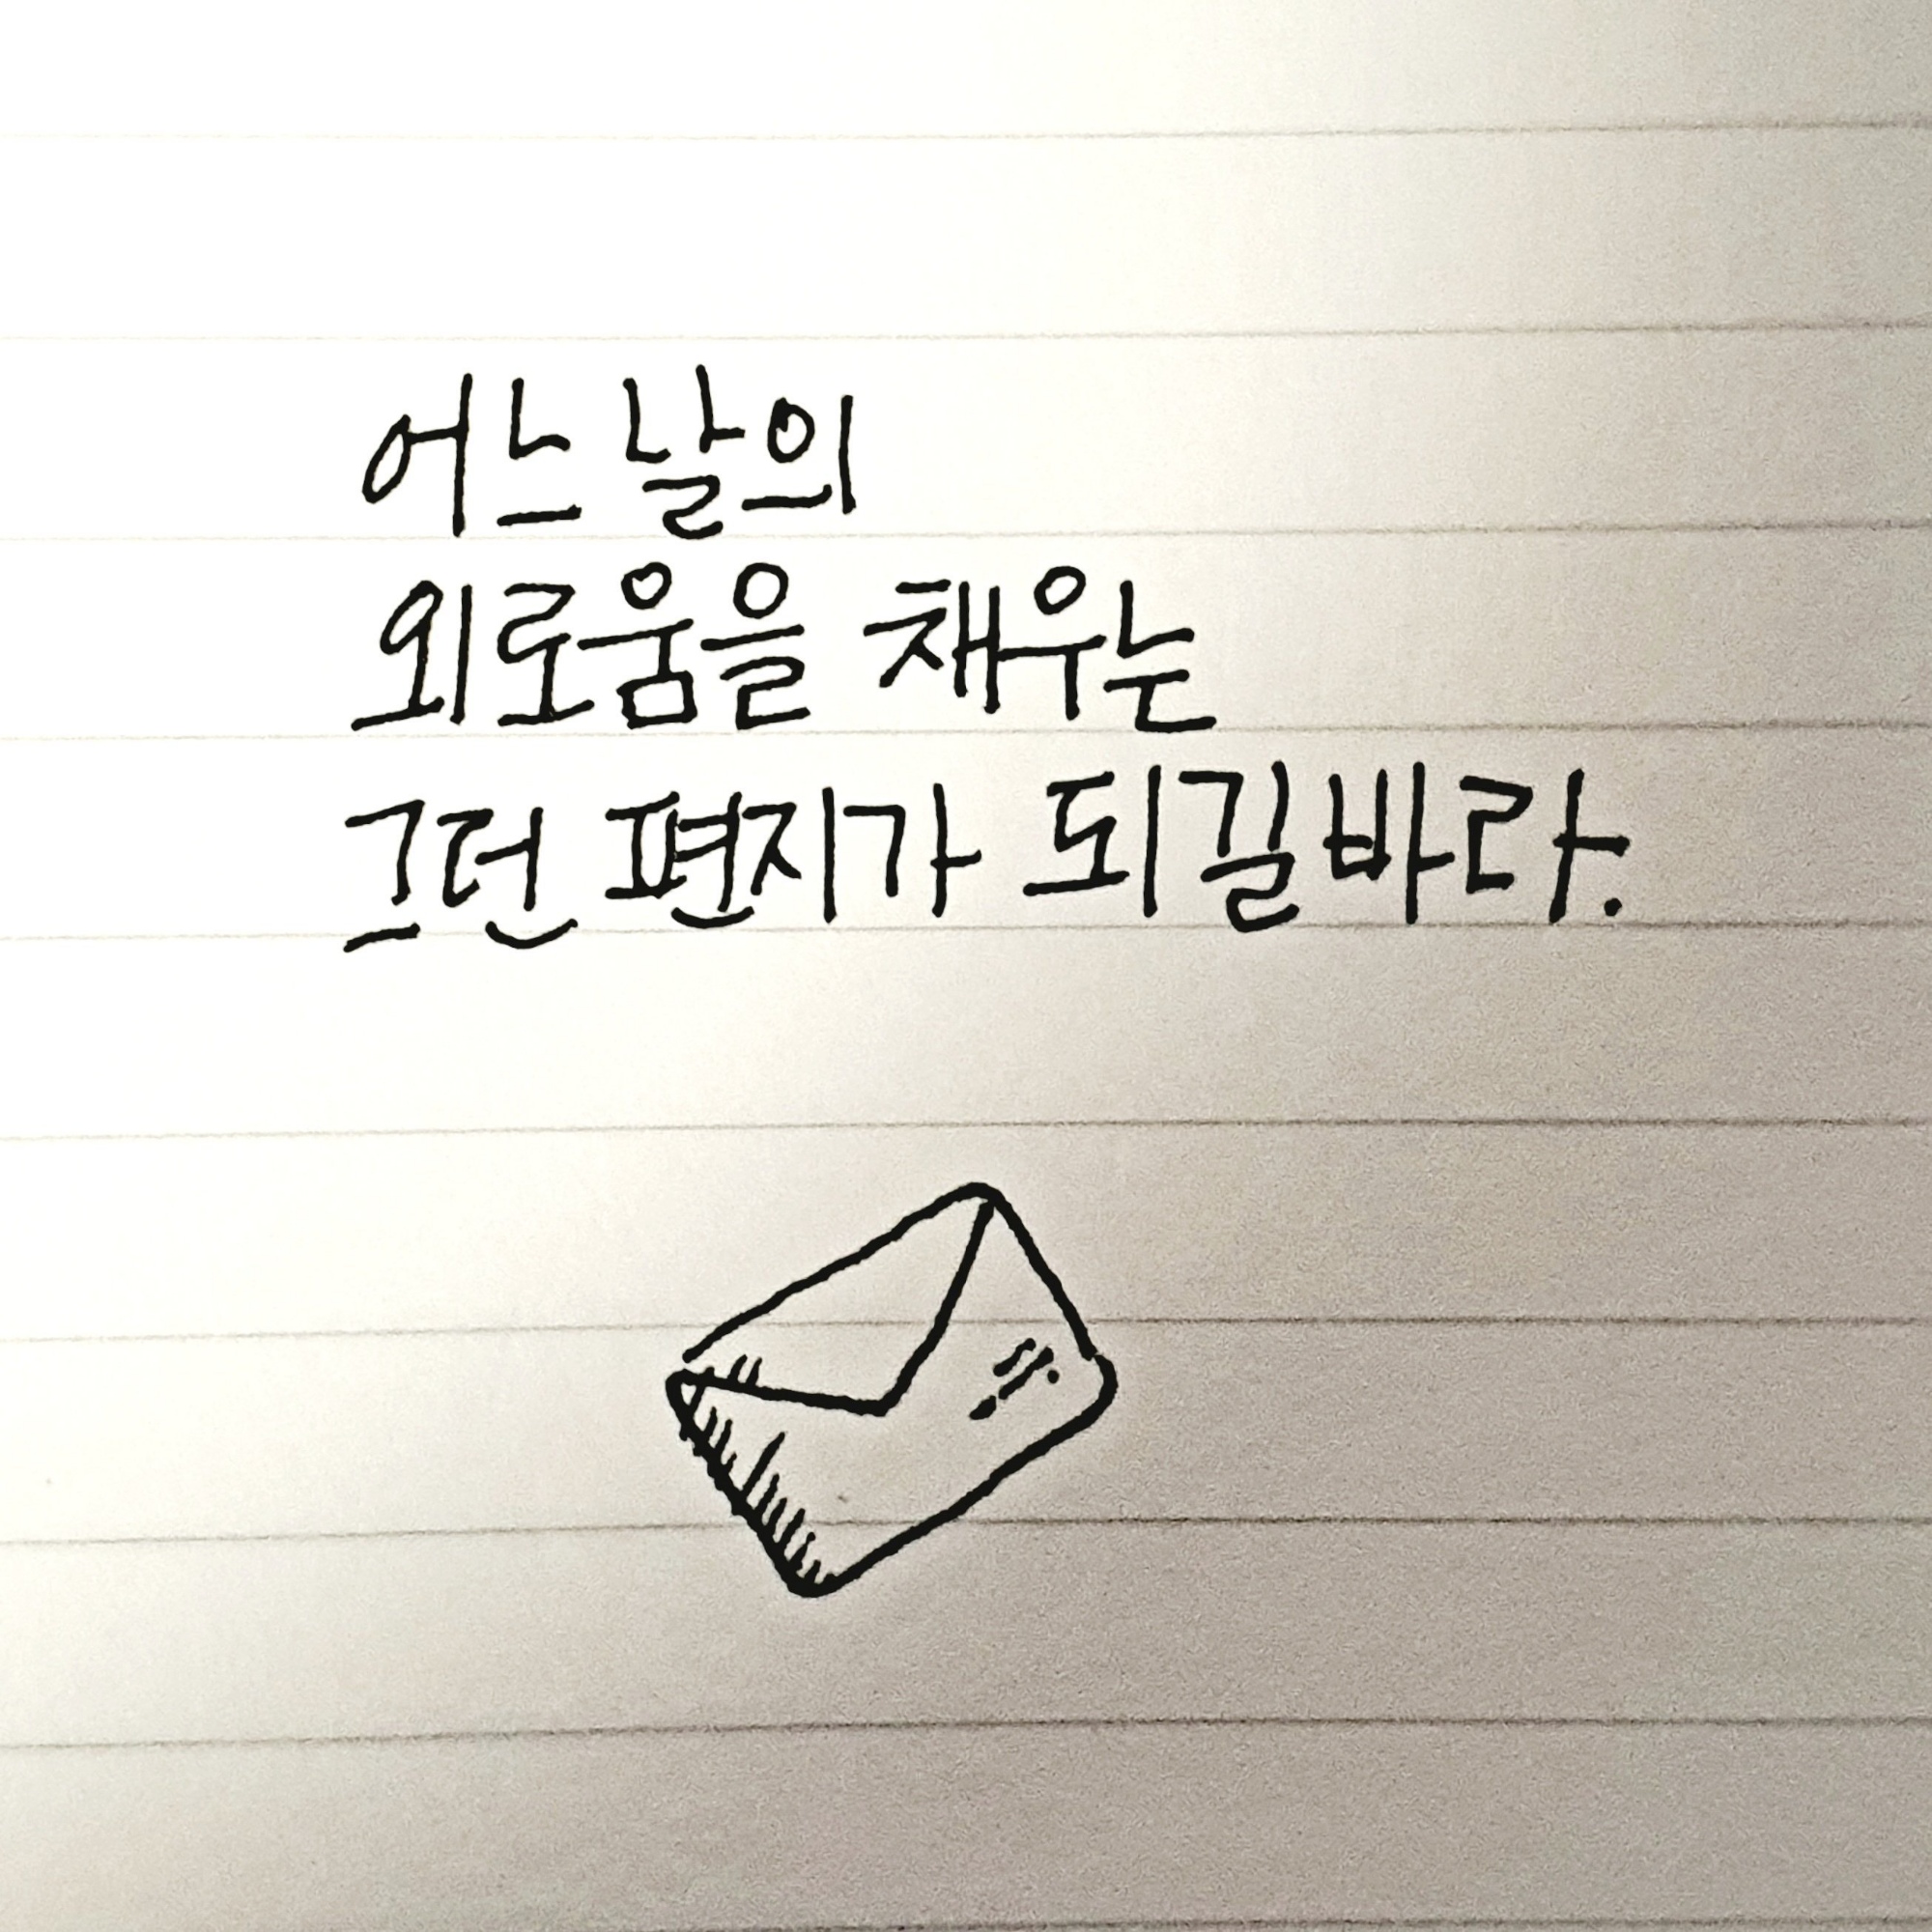 어느 날의
외로움을 채우는
그런 편지가 되길바라.